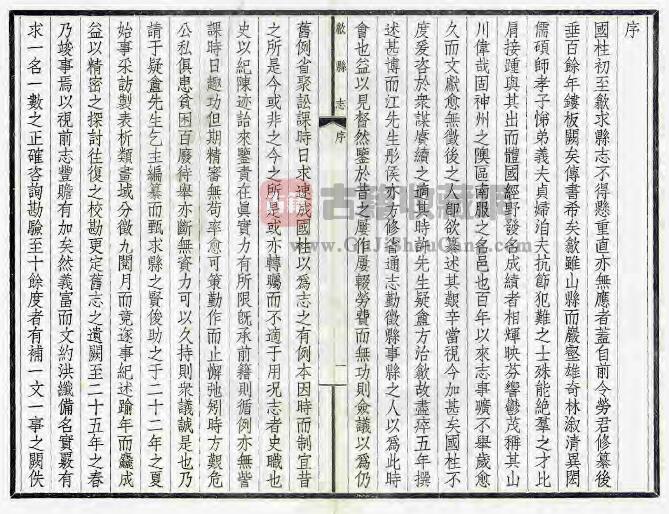 序
國柱初至歙求縣志不得懸重直亦無應者蓋自前令勞君修纂後
垂百餘年鏤板闕矣傳書希矣歙雖山縣而巖壑雄奇林漵清異閎
儒碩師孝子悌弟義夫貞婦洎夫抗節犯難之士殊能絶羣之才比
肩接踵與其出而體國經野發名成績者相輝映芬響鬱茂稱其山
川偉哉固神州之隩區南服之名邑也百年以來志事曠不舉歲愈
久而文獻愈無徵後之人即欲纂述其艱辛當視今加甚矣國柱不
度爰咨於衆謀賡續之適其時許先生疑盦方治歙故盡瘁五年撰
述甚博而江先生彤侯亦方修通志勤徵縣事縣之人以爲此時
會也益以見督然鑒於昔之屢作屢輟勞費而無功則僉議以爲仍
歙縣志 序
一
舊例省聚訟課時日求速成國柱以爲志之有例本因時而制宜昔
之所是今或非之今之所是或亦轉矚而不適于用況志者史職也
史以紀陳迹詒來鑒責在眞實力有所限旣承前籍則循例亦無訾
課時日趣功但期精審無苟率愈可策勤作而止懈弛矧時方艱危
公私俱患貧困百廢待舉亦斷無資力可以久持則衆議誠是也乃
請于疑盦先生乞主編纂而甄求縣之賢俊助之于二十二年之夏
始事采訪製表析類畫域分徵九閱月而竟逐事紀述踰年而纔成
益以精密之探討往復之校勘更定舊志之遺闕至二十五年之春
乃竣事焉以視前志豐贍有加矣然義富而文約洪纖備名實覈有
求一名一數之正確咨詢勘驗至十餘度者有補一文一事之闕佚
古籍收藏网
www.GuJiShouCang.com